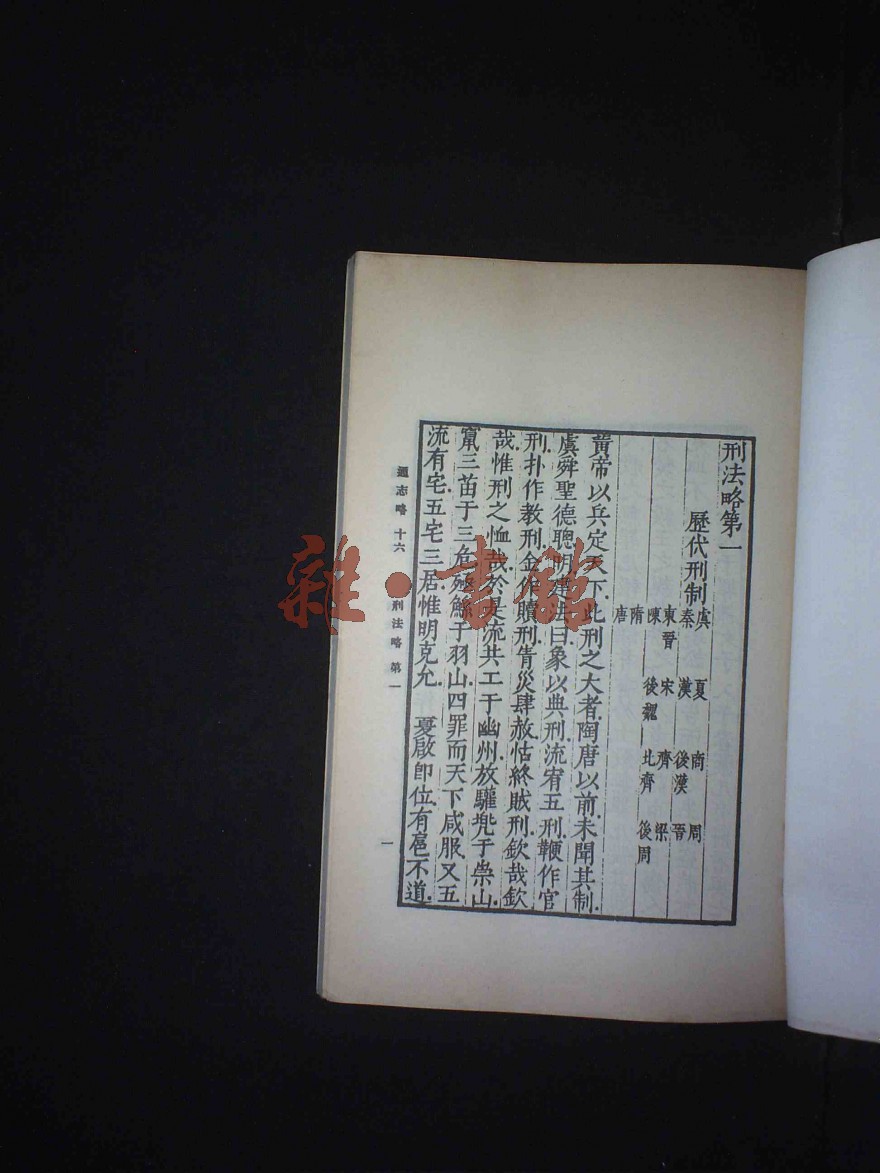 刑法略第一
歷代刑制
虞 夏 商 周
秦 漢 後漢 晉
東晉 宋 齊 梁
陳 後魏 北齊 後周
隋
唐
黃帝以兵定天下.此刑之大者.陶唐以前.未聞其制.
虞舜聖德聰明.建法曰.象以典刑.流宥五刑.鞭作官
刑.扑作教刑.金作贖刑.眚災肆赦.怙終賊刑.欽哉欽
哉.惟刑之恤哉.於是流共工于幽州.放驩兠于崇山.
竄三苗于三危.殛鯀于羽山.四罪而天下咸服.又五
流有宅.五宅三居.惟明克允. 夏啟卽位.有扈不道.
通志略 十六 刑法略 第一
一
雜·書館